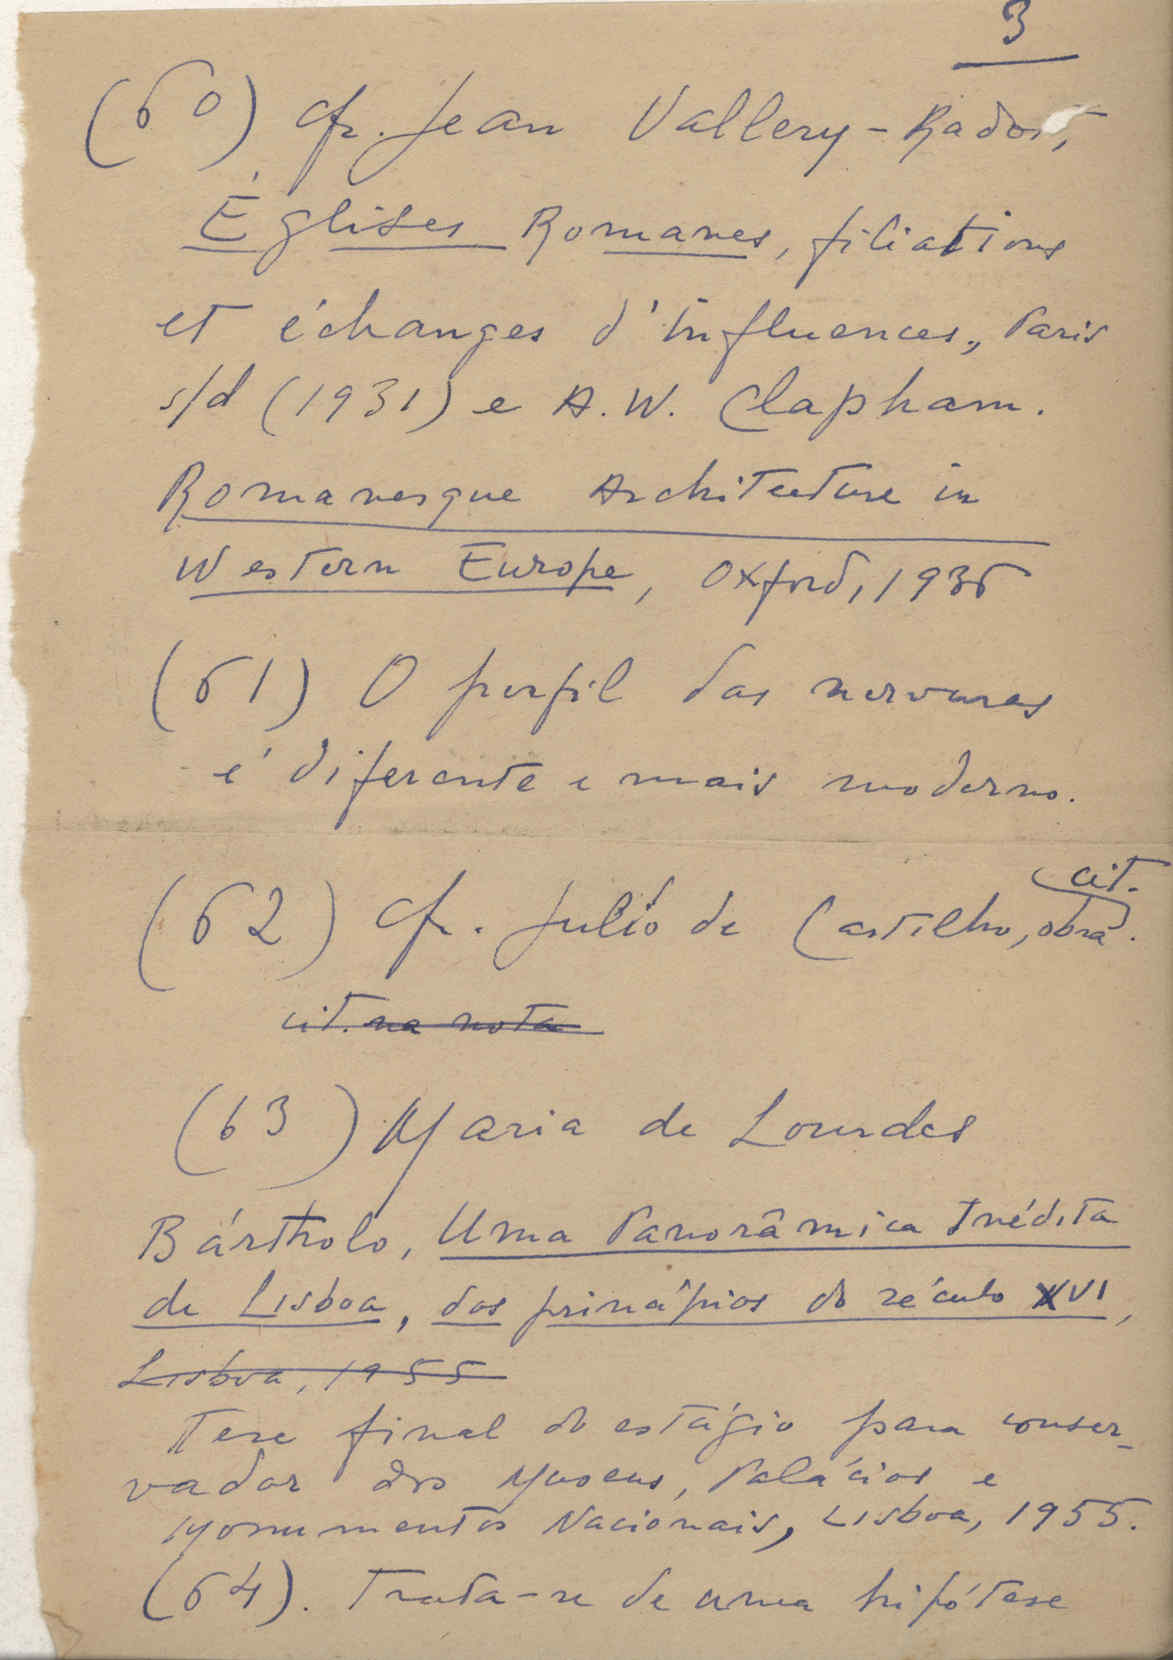 3
(60) Cfr. Jean Vallery-Radot,
Églises Romanes, filiations
et échanges d'influences, Paris
s/d (1931) e A. W. Clapham.
Romanesque Architecture in
Western Europe, Oxford, 1936
(61) O perfil das nervuras
é diferente e mais moderno.
cit.
(62) Cfr. Julio de Castilho, obra.
cit. na nota
(63) Maria de Lourdes
Bártholo, Uma Panorâmica Inédita
de Lisboa, dos princípios do século XVI,
Lisboa, 1955
Tese final do estágio para conser-
vador dos Museus, Palácios e
Monumentos Nacionais, Lisboa, 1955.
(64). Trata-se de uma hipótese